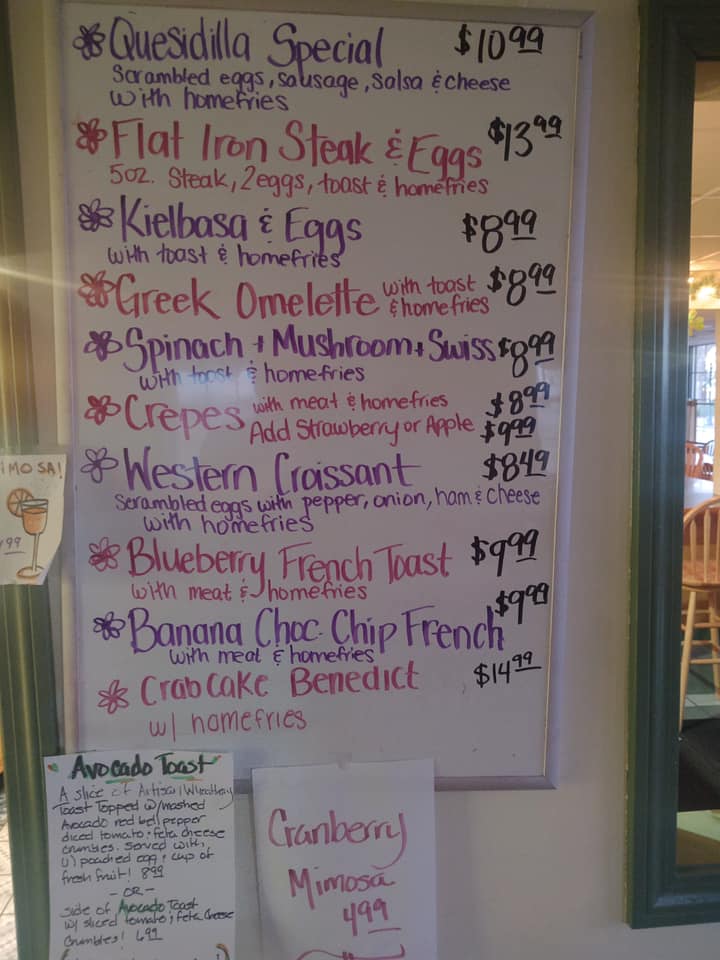 Quesidilla Special $10.99
Scrambled eggs, sausage, salsa & cheese
with homefries
Flat Iron Steak & Eggs $13.99
5oz. Steak, 2eggs, toast & homefries
Kielbasa & Eggs $8.99
with toast & homefries
Greek Omelette with toast & homefries $8.99
Spinach + Mushroom + Swiss $8.99
with toast & homefries
Crêpes with meat & homefries $8.99
Add Strawberry or Apple $9.99
Western Croissant $8.49
Scrambled eggs with pepper, onion, ham & cheese
with homefries
Blueberry French Toast $9.99
with meat & homefries
Banana Choc. Chip French $9.99
with meat & homefries
Crab Cake Benedict $14.99
w/ homefries
IMOSA!
99
Avocado Toast
A slice of Artisan Wheatberry
Toast Topped w/mashed
Avocado red bell pepper
diced tomato & feta cheese
crumbles. Served with,
(1) poached egg & cup of
fresh fruit! 8.99
- OR -
side of Avocado Toast
w/ sliced tomato & feta cheese
crumbles! 6.99
Cranberry
Mimosa
4.99